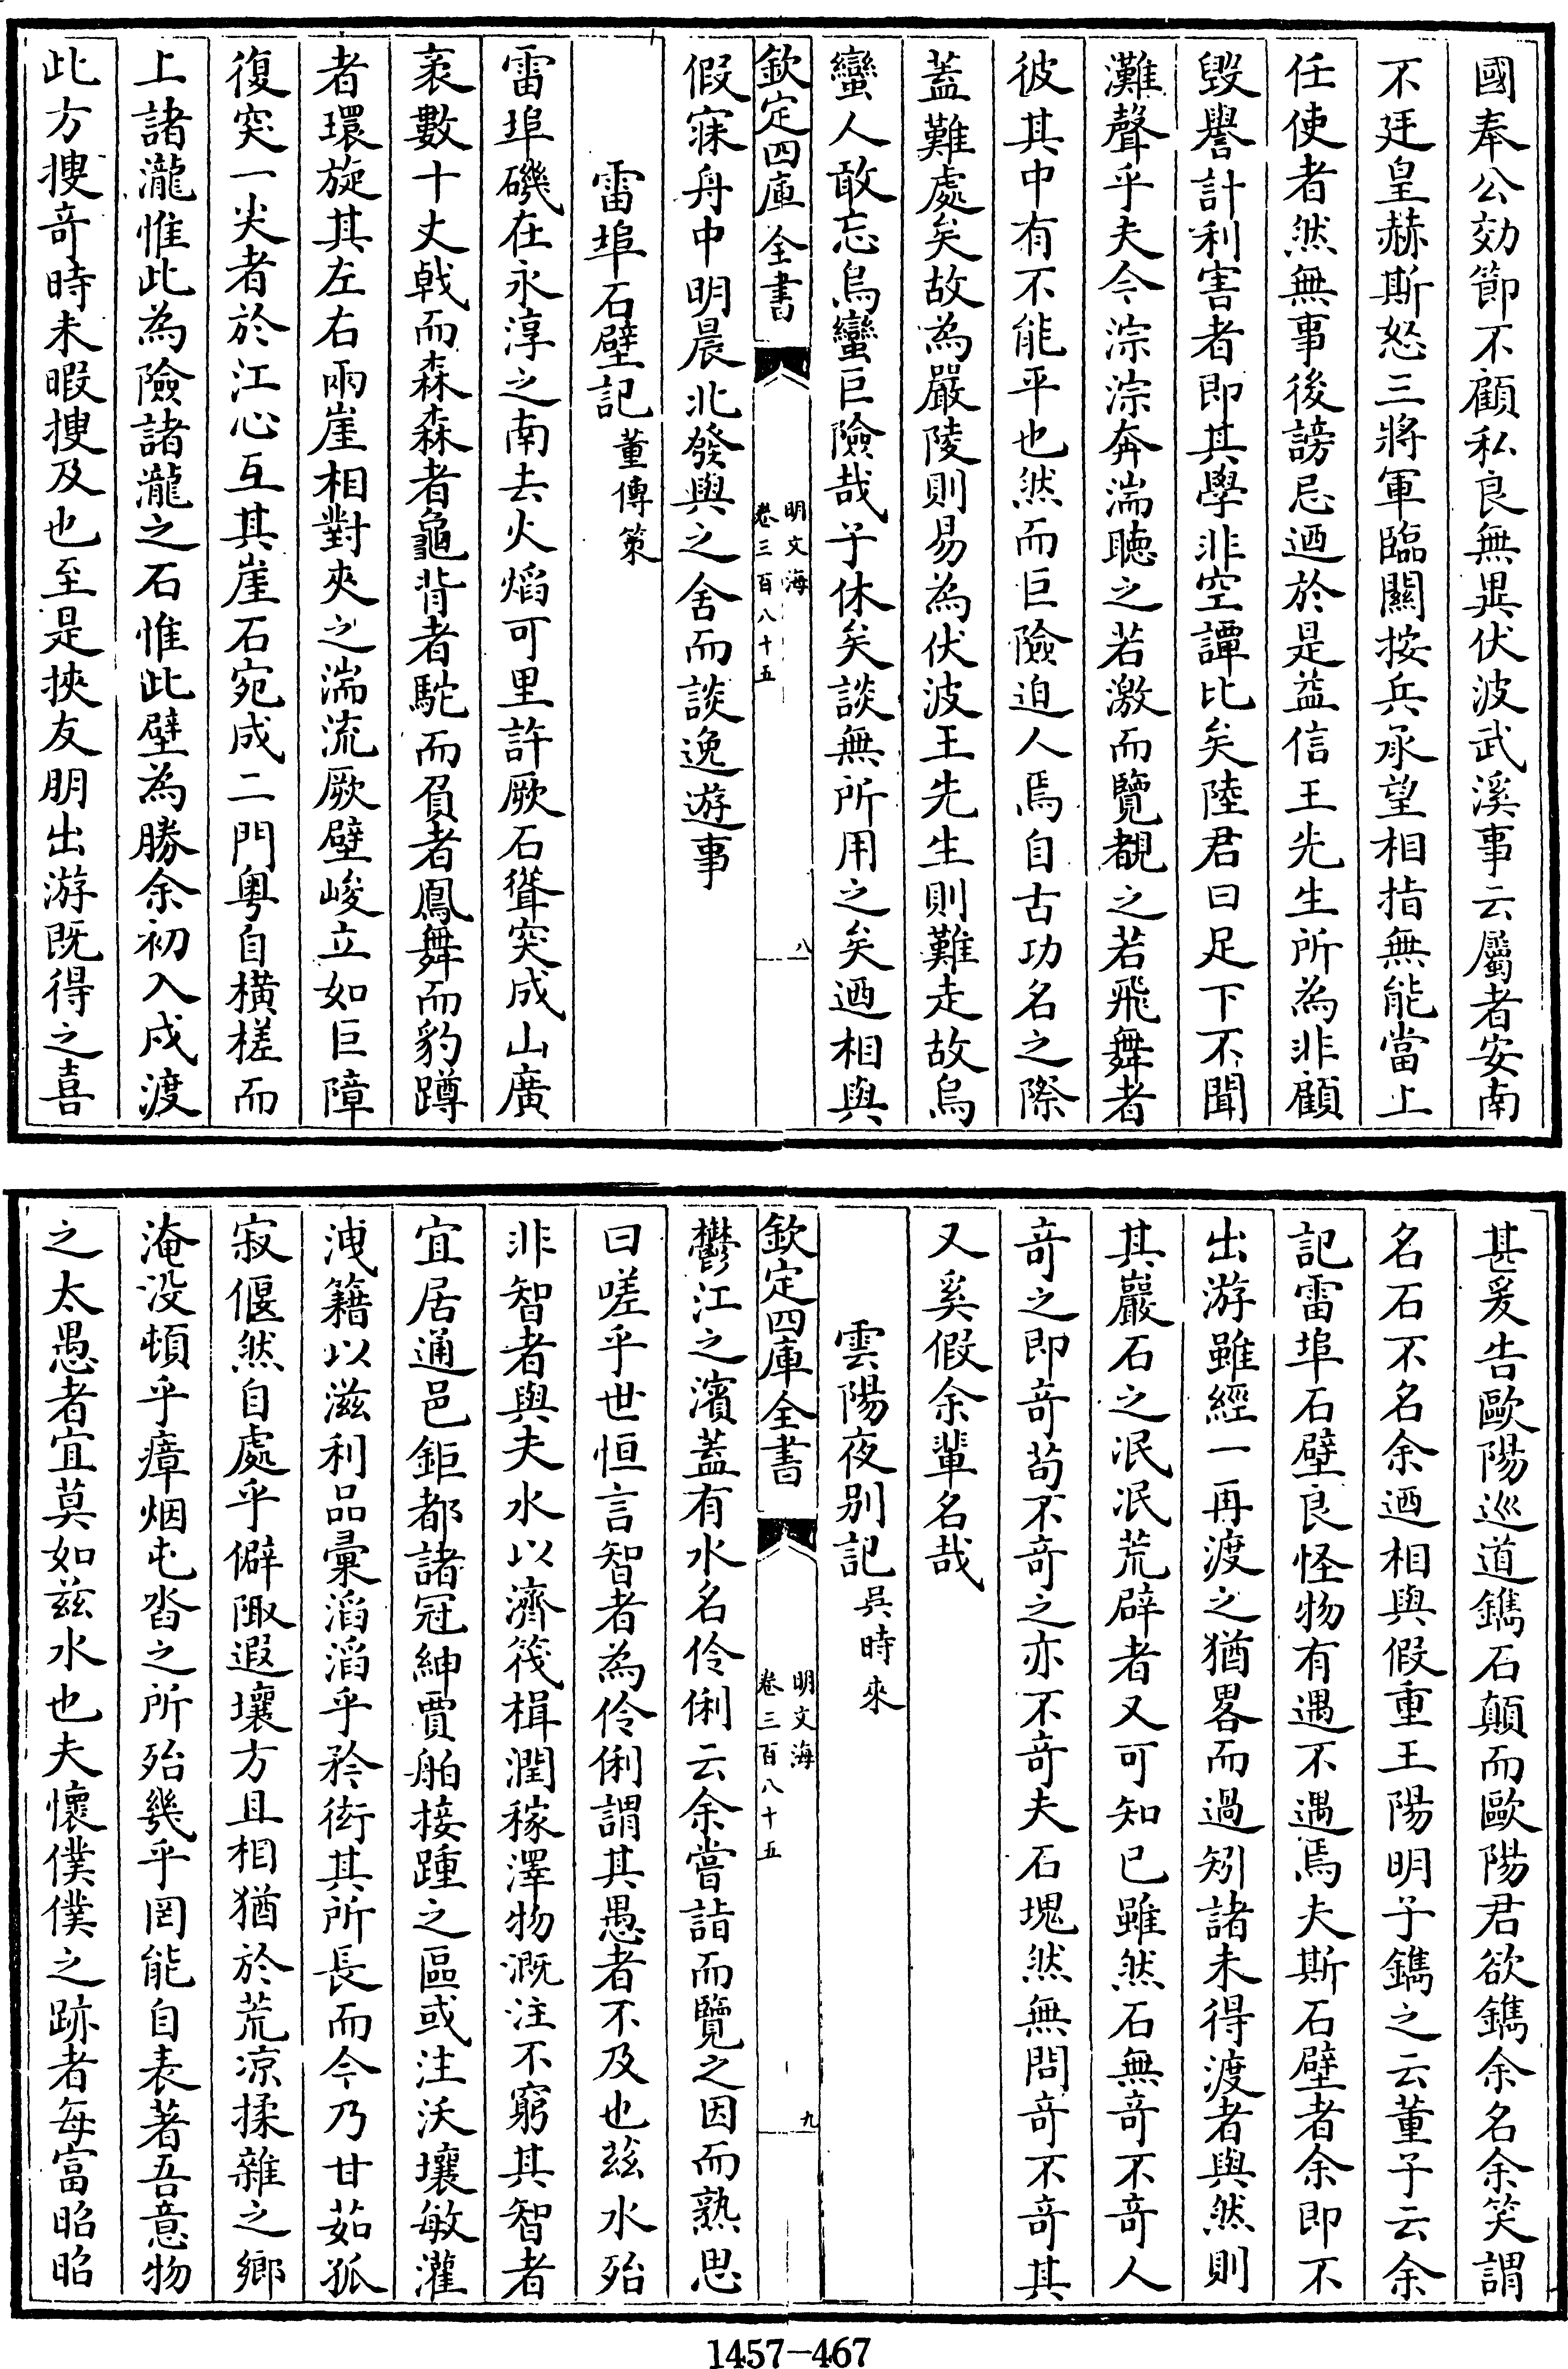 國奉公効節不顧私良無異伏波武溪事云屬者安南
不廷皇赫斯怒三將軍臨關按兵承望相指無能當上
任使者然無事後謗忌迺於是益信王先生所為非顧
毀譽計利害者即其學非空譚比矣陸君曰足下不聞
灘聲乎夫今淙淙奔湍聽之若激而覽覩之若飛舞者
彼其中有不能平也然而巨險迫人焉自古功名之際
蓋難處矣故為嚴陵則易為伏波王先生則難走故烏
蠻人敢忘烏蠻巨險哉予休矣談無所用之矣迺相與
欽定四庫全書
明文海
卷三百八十五
八
假寐舟中明晨北發與之舍而談逸遊事
雷埠石壁記董傳策
雷埠磯在永淳之南去火熖可里許厥石聳突成山廣
袤數十丈㦸而森森者龜背者駝而負者鳳舞而豹蹲
者環旋其左右兩崖相對夾之湍流厥壁峻立如巨障
復突一尖者於江心互其崖石宛成二門粤自橫槎而
上諸瀧惟此為險諸瀧之石惟此壁為勝余初入戍渡
此方搜竒時未暇搜及也至是挾友朋出游既得之喜
甚爰告歐陽巡道鐫石顛而歐陽君欲鐫余名余笑謂
名石不名余迺相與假重王陽明子鐫之云董子云余
記雷埠石壁良怪物有遇不遇焉夫斯石壁者余即不
出游雖經一再渡之猶畧而過矧諸未得渡者與然則
其巖石之泯泯荒辟者又可知已雖然石無竒不竒人
竒之即竒茍不竒之亦不竒夫石塊然無問竒不竒其
又奚假余輩名哉
雲陽夜别記吳時來
欽定四庫全書
明文海
卷三百八十五
九
鬱江之濱蓋有水名伶俐云余嘗詣而覽之因而熟思
曰嗟乎世恒言智者為伶俐謂其愚者不及也兹水殆
非智者與夫水以濟筏楫潤稼澤物溉注不窮其智者
宜居通邑鉅都諸冠紳賈舶接踵之區或注沃壤敏灌
洩籍以滋利品彙滔滔乎矜衒其所長而今乃甘茹狐
寂偃然自處乎僻陬遐壤方且相猶於荒凉揉雜之鄉
淹没頓乎瘴烟屯沓之所殆幾乎罔能自表著吾意物
之太愚者宜莫如兹水也夫懷僕僕之跡者每富昭昭
1457—467